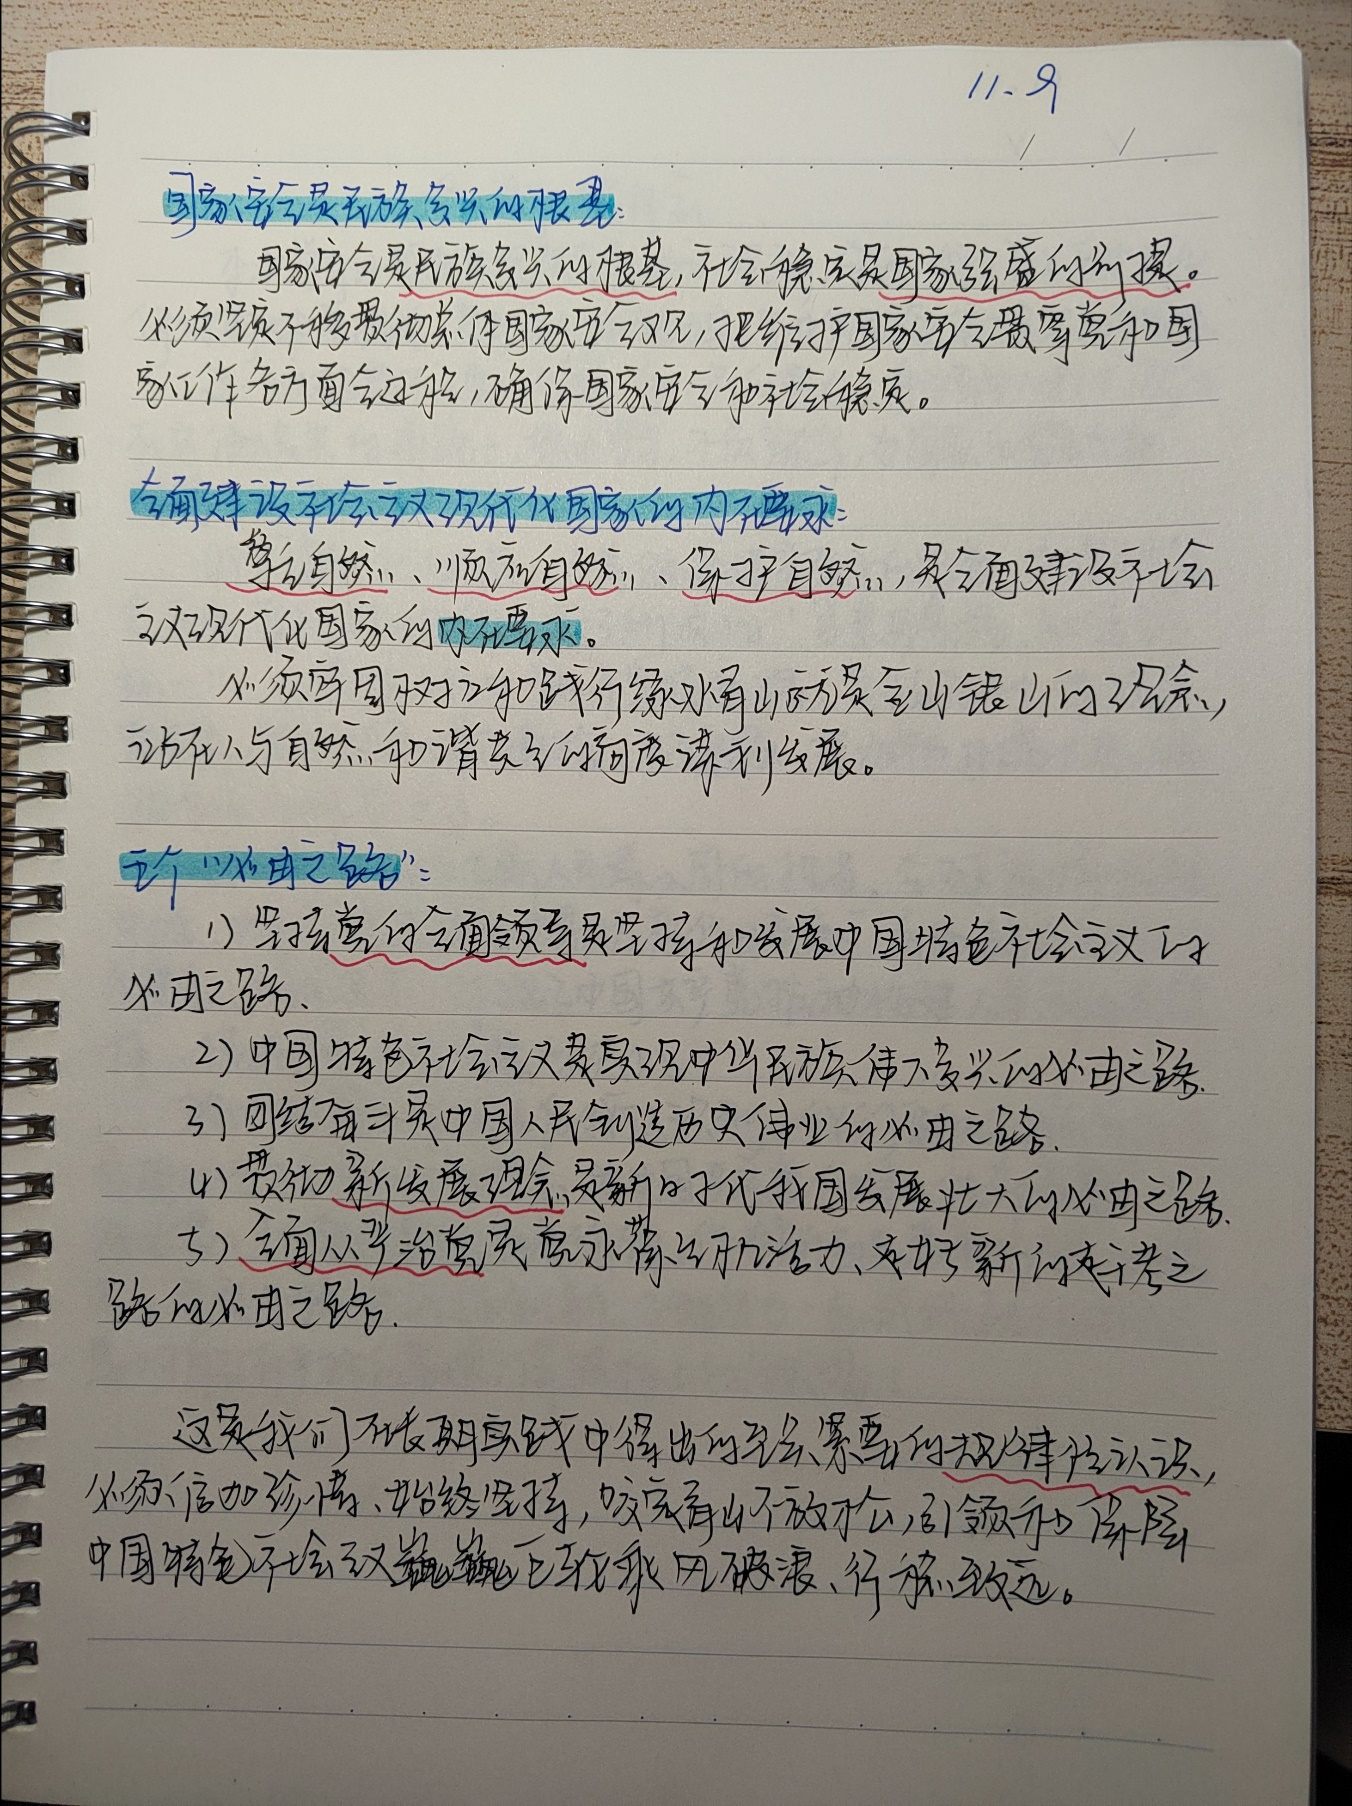 11.9
国家安全是民族复兴的根基:
国家安全是民族复兴的根基,社会稳定是国家强盛的前提。
必须坚定不移贯彻总体国家安全观,把维护国家安全贯穿党和国
家工作各方面全过程,确保国家安全和社会稳定。
全面建设社会主义现代化国家的内在要求:
尊重自然、顺应自然、保护自然,是全面建设社会
主义现代化国家的内在要求。
必须牢固树立和践行绿水青山就是金山银山的理念,
站在人与自然和谐共生的高度谋划发展。
五个“必由之路”:
1) 坚持党的全面领导是坚持和发展中国特色社会主义的
必由之路.
2) 中国特色社会主义是实现中华民族伟大复兴的必由之路.
3) 团结奋斗是中国人民创造历史伟业的必由之路.
4) 贯彻新发展理念是新时代我国发展壮大的必由之路.
5) 全面从严治党是党永葆生机活力、走好新的赶考之
路的必由之路.
这是我们在长期实践中得出的至关紧要的规律性认识,
必须倍加珍惜、始终坚持,咬定青山不放松,引领和保障
中国特色社会主义巍巍巨轮乘风破浪、行稳致远。